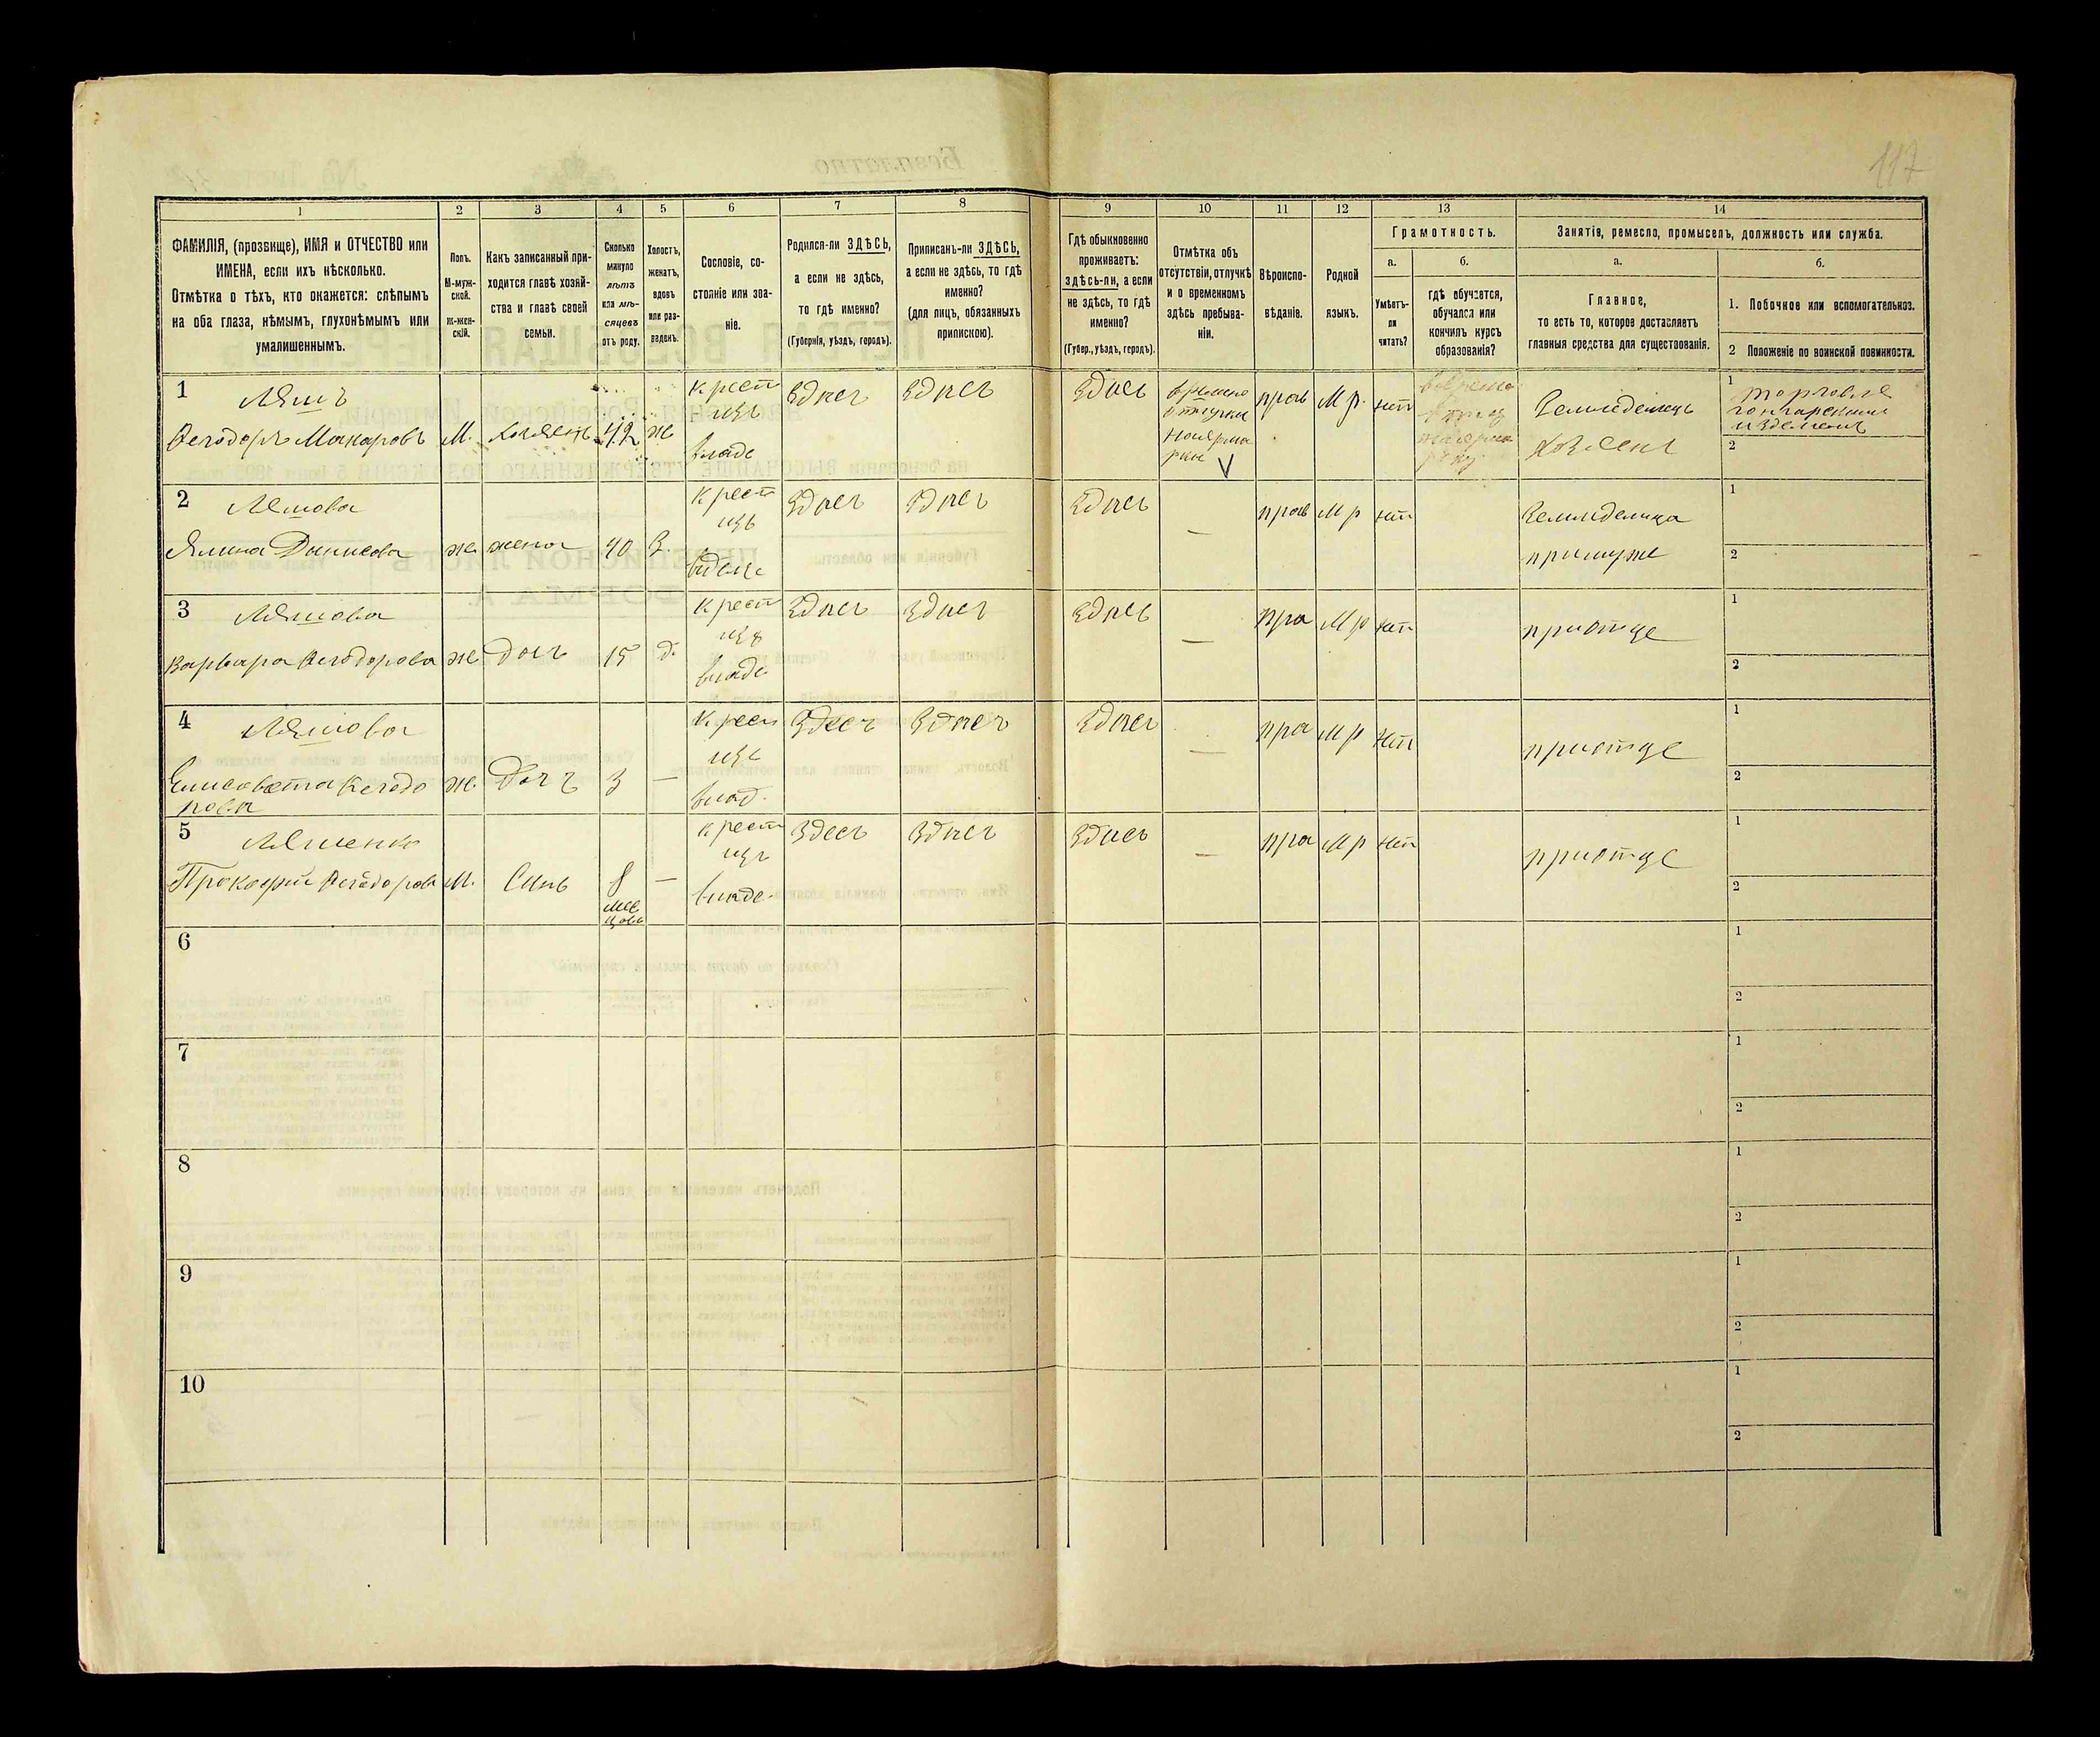 117
1 2 3 4 5 6 7 8 9 10 11 12 13 14
ФАМИЛІЯ, (прозвище), ИМЯ и ОТЧЕСТВО или
ИМЕНА, если ихъ нѣсколько.
Отмѣтка о тѣхъ, кто окажется: слѣпымъ
на оба глаза, нѣмымъ, глухонѣмымъ или
умалишеннымъ.
Полъ.
М-муж-
ской.
Ж-жен-
скій.
Какъ записанный при-
ходится главѣ хозяй-
ства и главѣ своей
семьи.
Сколько
минуло
лѣтъ
или мѣ-
сяцевъ
отъ роду.
Холостъ,
женатъ,
вдовъ
или раз-
веденъ.
Сословіе, со-
стояніе или зва-
ніе.
Родился-ли ЗДѢСЬ,
а если не здѣсь,
то гдѣ именно?
(Губернія, уѣздъ, городъ).
Приписанъ-ли ЗДѢСЬ,
а если не здѣсь, то гдѣ
именно?
(для лицъ, обязанныхъ
припискою).
Гдѣ обыкновенно
проживаетъ:
здѣсь-ли, а если
не здѣсь, то гдѣ
именно?
(Губер., уѣздъ, городъ).
Отмѣтка объ
отсутствіи, отлучкѣ
и о временномъ
здѣсь пребыва-
ніи.
Вѣроиспо-
вѣданіе.
Родной
языкъ.
Грамотность.
а.
Умѣетъ-
ли
читать?
б.
гдѣ обучается,
обучался или
кончилъ курсъ
образованія?
Занятіе, ремесло, промыселъ, должность или служба.
а.
Главное,
то есть то, которое доставляетъ
главныя средства для существованія.
б.
1. Побочное или вспомогательное.
2 Положеніе по воинской повинности.
1
Ляшъ
Феодоръ Макаровъ
М.
хозяенъ
42
ж
крест
изъ
владе
Здпсъ
Здпсъ
Здпсъ
прав
М р.
нтп
Земледелецъ
хозяенъ
1
торговля
гончарскими
2
2
Ляшова
Данилова
ж.
жена
40
З.
крест
изъ
Здпсъ
Здпсъ
Здпсъ
—
прав
М р
нтп
Земледелица
примуже
1
2
3
Ляшова
Варвара Феодорова
ж
Доч
15
д.
крест
изъ
владе
Здпсъ
Здпсъ
Здпсъ
—
пра
М р
нтп
приотце
1
2
4
Ляшова
Елисовета Феодо
рова
ж.
Доч
3
—
крес
изъ
влад.
Здесъ
Здпсъ
Здпсъ
—
пра
М р
нтп
приотце
1
2
5
Ляшенко
Прокофий Феодоров
М.
Синъ
8
мес
цовъ
—
крест
изъ
владе.
Здесъ
Здпсъ
Здпсъ
—
пра
М р
нтп
приотце
1
2
6
1
2
7
1
2
8
1
2
9
1
2
10
1
2